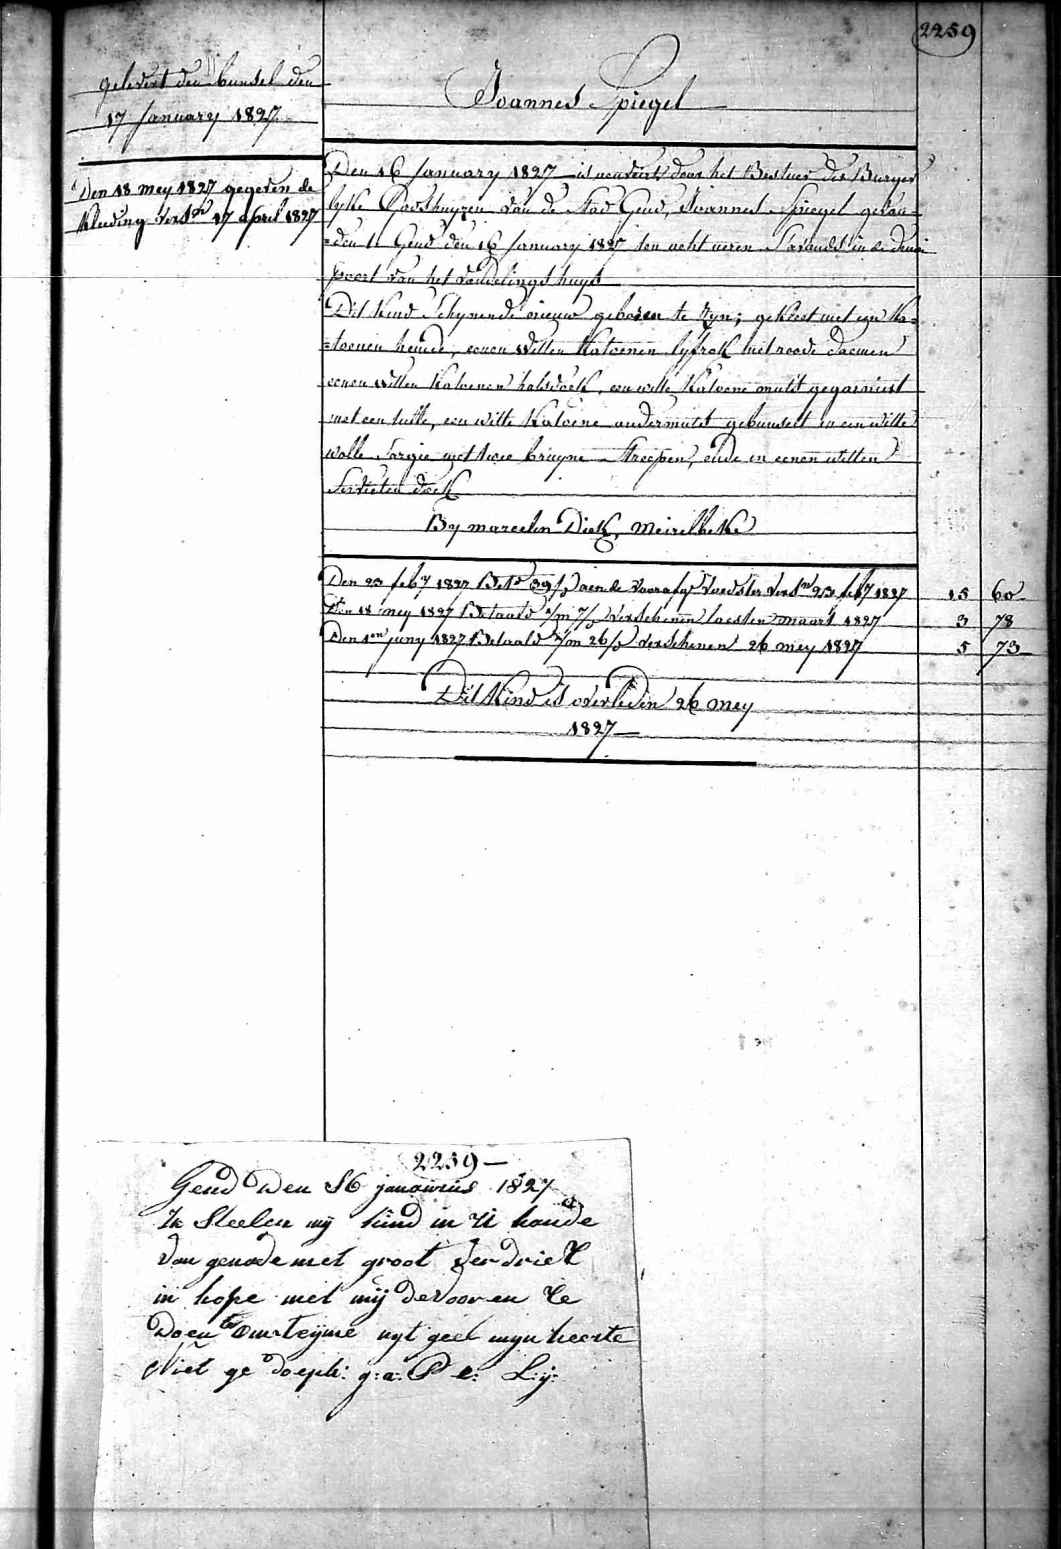 2259
gelevert den bunsel den
17 January 1827
Den 18 mey 1827 gegeven de
kleeding versn 17 april 1827
Joannes Spiegel
Den 16 January 1827 is aenveirt door het Bestuer der Burger
lyke Godshuyzen van de Stad Gend, Joannes Spiegel gevon=
=den tt Gend den 16 January 1827 ten acht ueren s'avonds in de draei
poort van het vondelingshuys
Dit Kind schynende nieuw geboren te zyn; gekleet met een Ka=
=toenen hemde, eenen witten Katoenen lyfrok met roode bloemen
eenen witten Katoenen halsdoek, een witte Katoene muts gegarniert
met een tulle, een witte Katoene ondermuts gebunselt in een witte
wolle Sargie met twee bruyne Streepen, ende in eenen witten
Servieten doek
By marcelin Dick, Meirelbeke
Den 23 feby 1827 Betd 39/ aen de voorafg voedster versn 23 feby 1827 15 60
Den 18 mey 1827 Betaald verschenen laesten maart 1827 3 78
Den 1en juny 1827 Betaald 26/ verschenen 26 mey 1827 5 73
Dit Kind is overleden 26 mey
1827
2259
Gend den 16 janowius 1827
Ik Steelen mij kind in U hande
van genade met groot verdriet
in hope met mij devooren te
Doen meyne uyt geel myn heerte
Niet ge doept: g: a: P e: L:y: